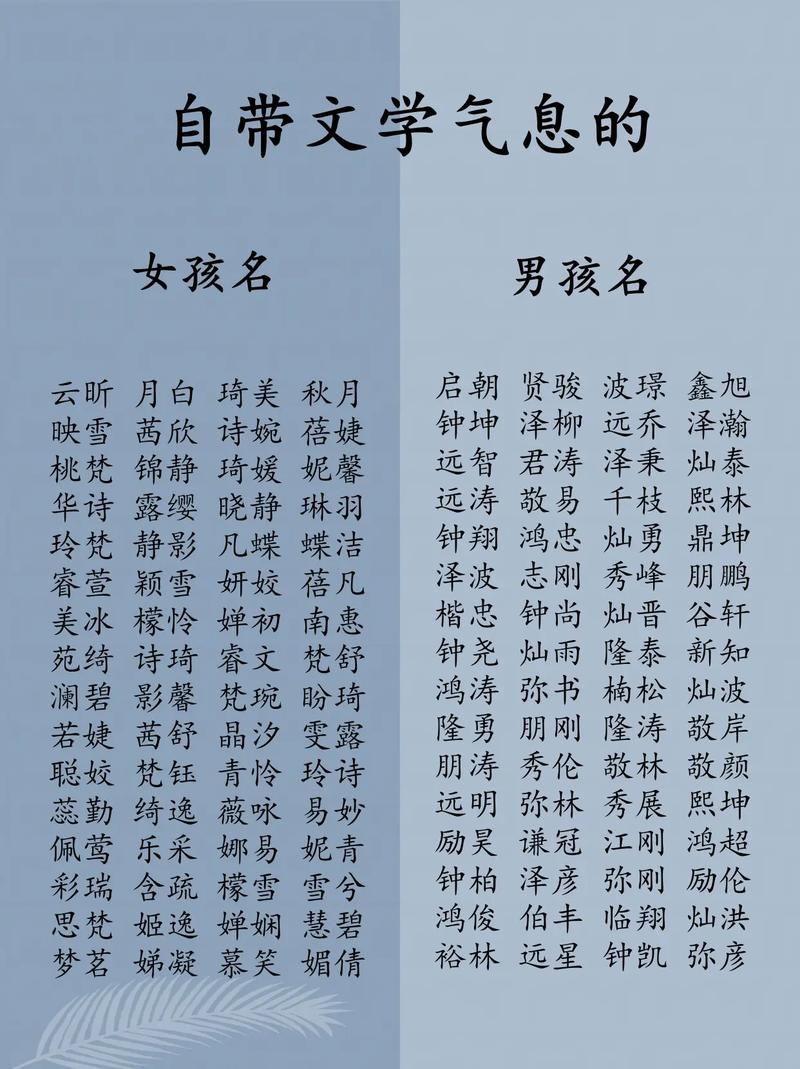 自带文学气息的
女孩名
云昕 月白 琦美 秋月
映雪 茜欣 诗婉 蓓婕
桃梵 锦静 琦媛 妮馨
华诗 露缨 晓静 琳羽
玲梵 静影 凡蝶 蝶洁
睿萱 颖雪 妍姣 蓓凡
美冰 檬怜 婵初 南惠
苑绮 诗琦 睿文 梵舒
澜碧 影馨 梵琬 盼琦
若婕 茜舒 晶汐 雯露
聪姣 梵钰 青怜 玲诗
蕊勤 绮逸 薇咏 易妙
佩莺 乐采 娜易 妮青
彩瑞 含疏 檬雪 雪兮
思梵 姬逸 婵娴 慧碧
梦茗 娣凝 慕笑 媚倩
男孩名
启朝 贤骏 波璟 鑫旭
钟坤 泽柳 远乔 泽瀚
远智 君涛 泽秉 灿泰
远涛 敬易 千枝 熙林
钟翔 鸿忠 灿勇 鼎坤
泽波 志刚 秀峰 朋鹏
楷忠 钟尚 灿晋 谷轩
钟尧 灿雨 隆泰 新知
鸿涛 弥书 楠松 灿波
隆勇 朋刚 隆涛 敬岸
朋涛 秀伦 敬林 敬颜
远明 弥林 秀展 熙坤
励昊 谦冠 江刚 鸿超
钟柏 泽彦 弥刚 励伦
鸿俊 伯丰 临翔 灿洪
裕林 远星 钟凯 弥彦